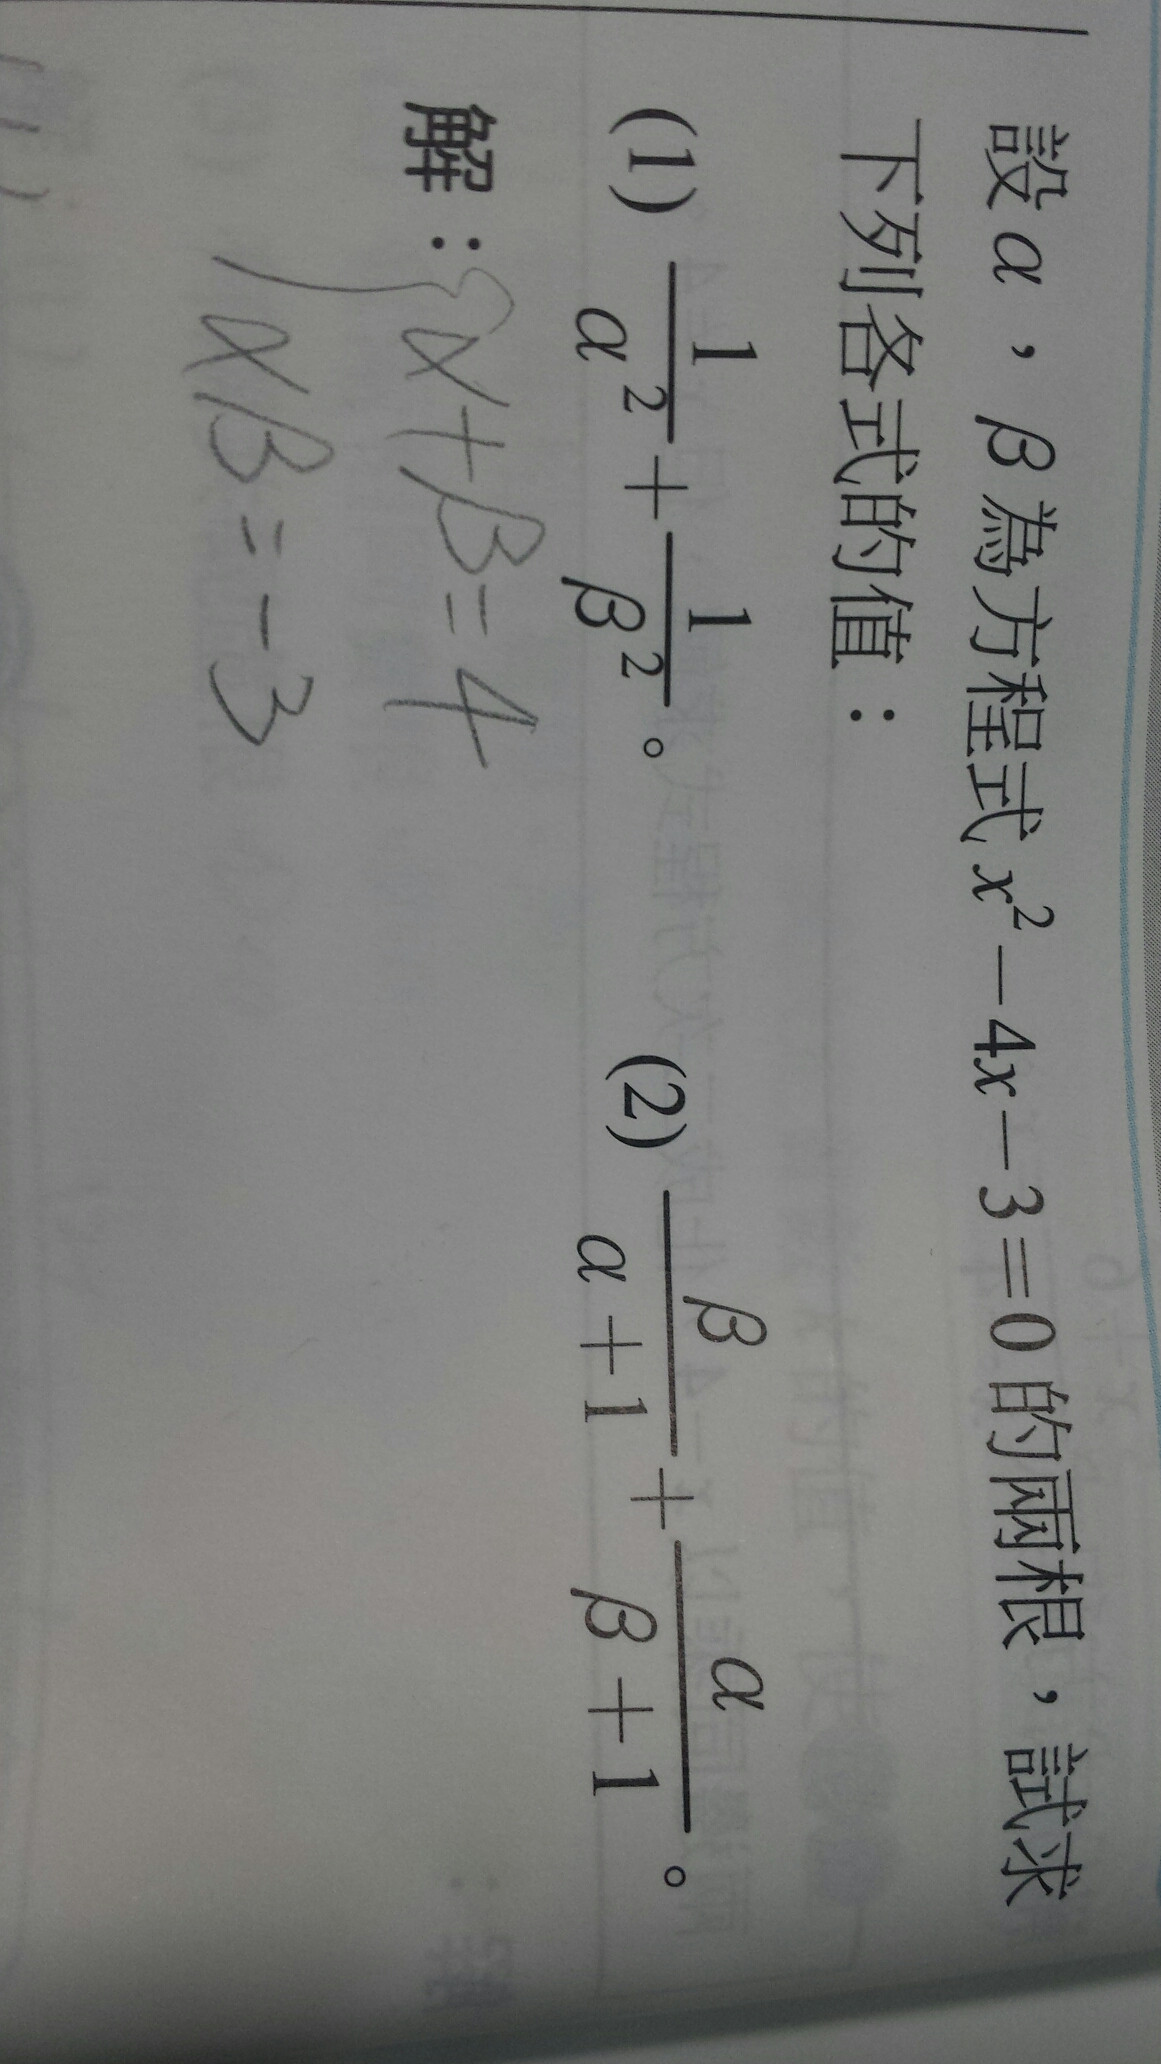 設α，β為方程式x²－4x－3＝0的兩根，試求
下列各式的值：
(1) 1/α² + 1/β²。 (2) β/(α+1) + α/(β+1)。
解：{α+β=4
αβ=-3